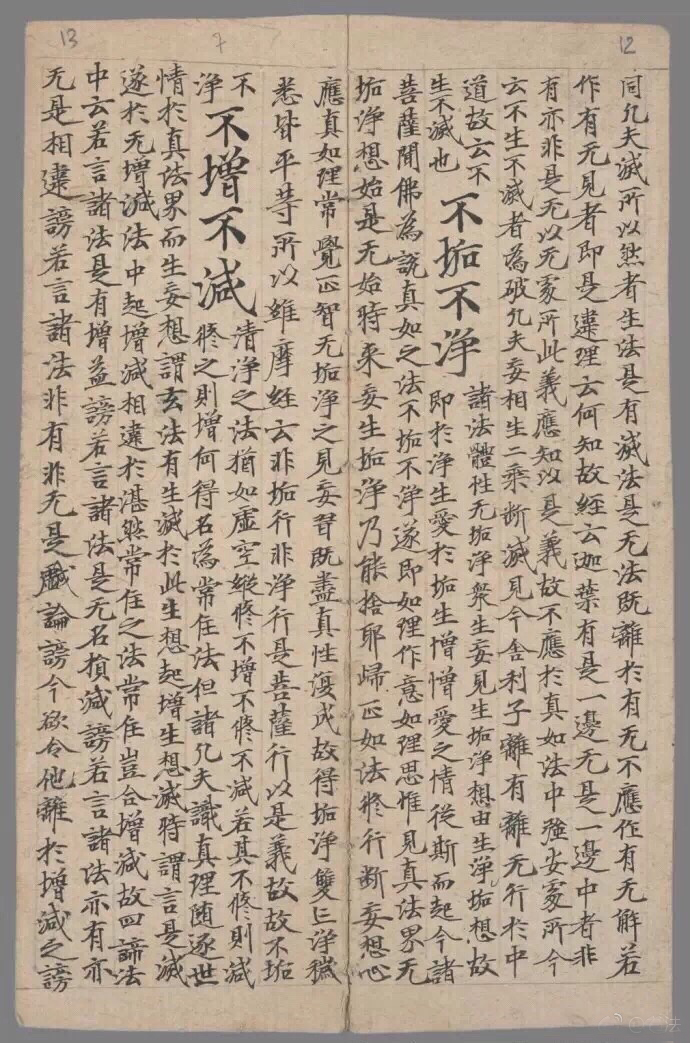 12
同凡夫滅所以然者生法是有滅法是无法既離於有无不應作有无解若
作有无見者即是違理云何知故經云迦葉有是一邊无是一邊中者非
有亦非是无以无處所此義應知以是義故不應於真如法中強安處所今
云不生不滅者為破凡夫妄相生二乘斷滅見今舍利子離有離无行於中
道故云不
生不滅也
不垢不淨
諸法體性无垢淨衆生妄見生垢淨想由生淨垢想故
即於淨生愛於垢生憎憎愛之情從斯而起今諸
菩薩聞佛為說真如之法不垢不淨遂即如理作意如理思惟見真法界无
垢淨想始是无始時來妄生垢淨乃能捨耶歸正如法修行斷妄想心
13
7
應真如理常覺正智无垢淨之見妄習既盡真性復成故得垢淨雙亡淨穢
悉皆平等所以維摩經云非垢行非淨行是菩薩行以是義故故不垢
不
淨
不增不減
清淨之法猶如虛空縱修不增不修不減若其不修則減
修之則增何得名為常住法但諸凡夫識真理随逐世
情於真法界而生妄想謂玄法有生滅於此生想起增生想滅時謂言是滅
遂於无增減法中起增減相違於湛然常住之法常住豈合增減故四諦法
中云若言諸法是有增益謗若言諸法是无名損減謗若言諸法亦有亦
无是相違謗若言諸法非有非无是戲論謗今欲令他離於增減之謗